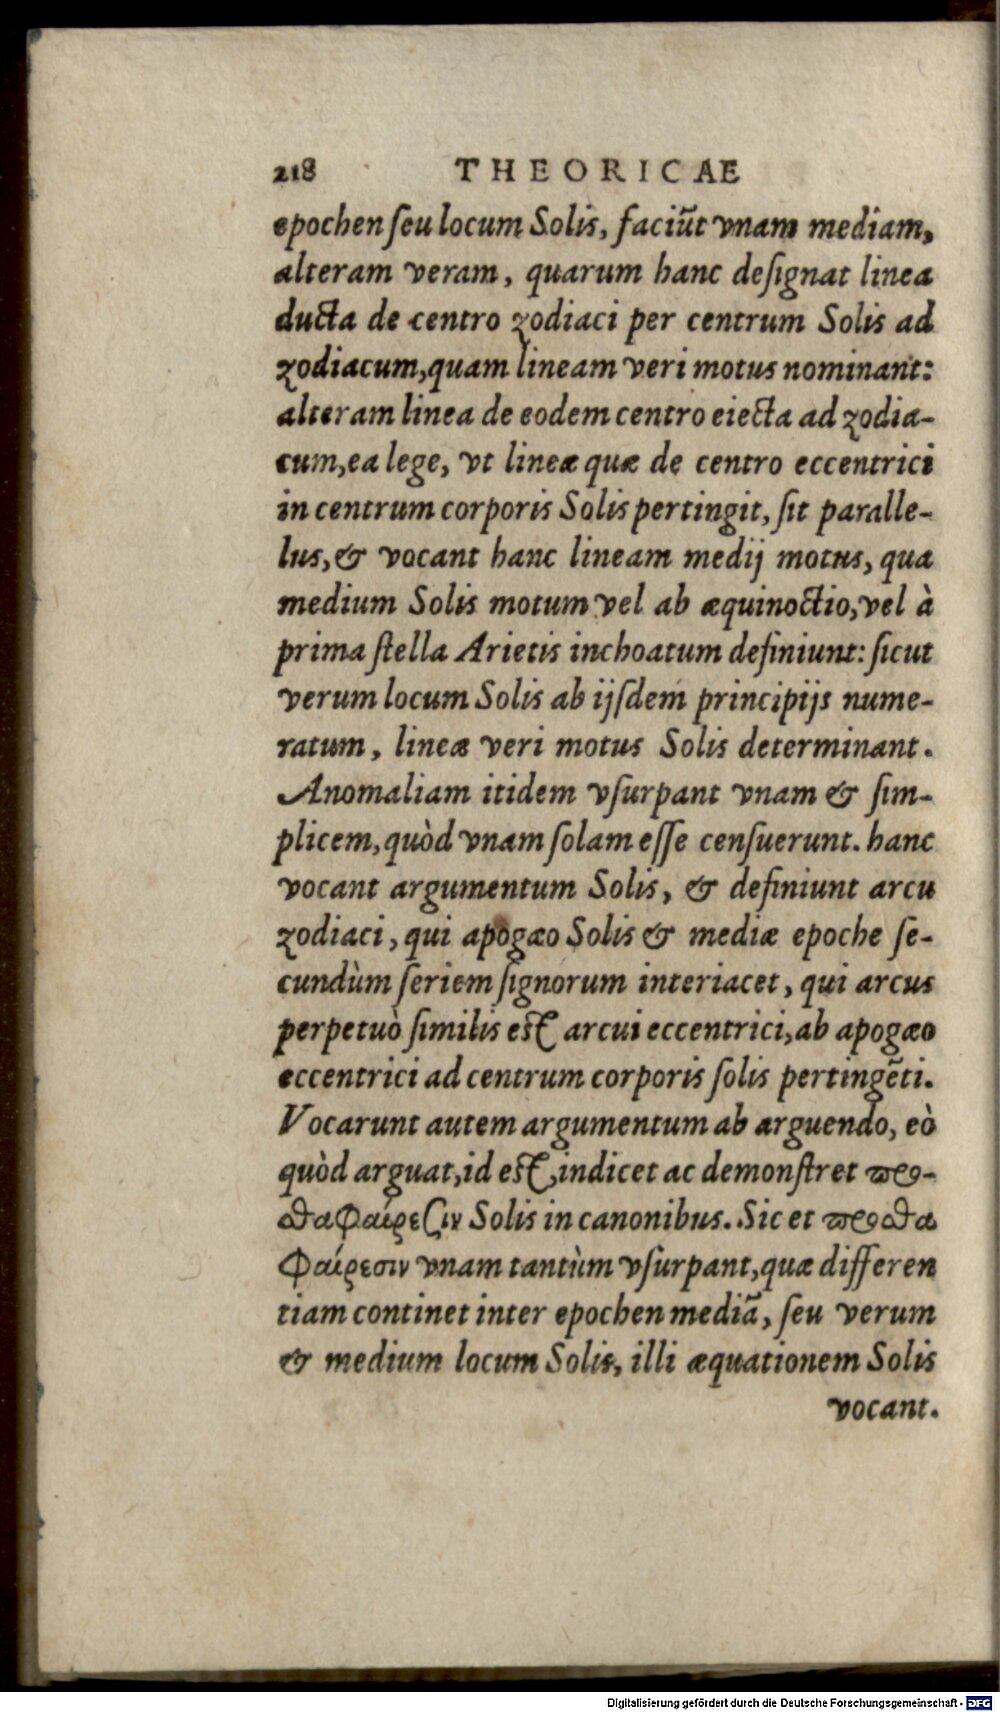 218 THEORICAE
epochen ſeu locum Solis, faciũt vnam mediam,
alteram veram, quarum hanc deſignat linea
ducta de centro zodiaci per centrum Solis ad
zodiacum, quam lineam veri motus nominant:
alteram linea de eodem centro eiecta ad zodia-
cum, ea lege, vt lineæ quæ de centro eccentrici
in centrum corporis Solis pertingit, ſit paralle-
lus, & vocant hanc lineam medij motus, qua
medium Solis motum vel ab æquinoctio, vel à
prima ſtella Arietis inchoatum definiunt: ſicut
verum locum Solis ab ijſdem principijs nume-
ratum, lineæ veri motus Solis determinant.
Anomaliam itidem vſurpant vnam & ſim-
plicem, quòd vnam ſolam eſſe cenſuerunt. hanc
vocant argumentum Solis, & definiunt arcu
zodiaci, qui apogæo Solis & mediæ epoche ſe-
cundùm ſeriem ſignorum interiacet, qui arcus
perpetuò ſimilis eſt arcui eccentrici, ab apogæo
eccentrici ad centrum corporis ſolis pertingẽti.
Vocarunt autem argumentum ab arguendo, eò
quòd arguat, id eſt, indicet ac demonſtret προ-
σθαφαίρεσιν Solis in canonibus. Sic et προσθα
φαίρεσιν vnam tantùm vſurpant, quæ differen
tiam continet inter epochen mediã, ſeu verum
& medium locum Solis, illi æquationem Solis
vocant.
Digitalisierung gefördert durch die Deutsche Forschungsgemeinschaft - DFG